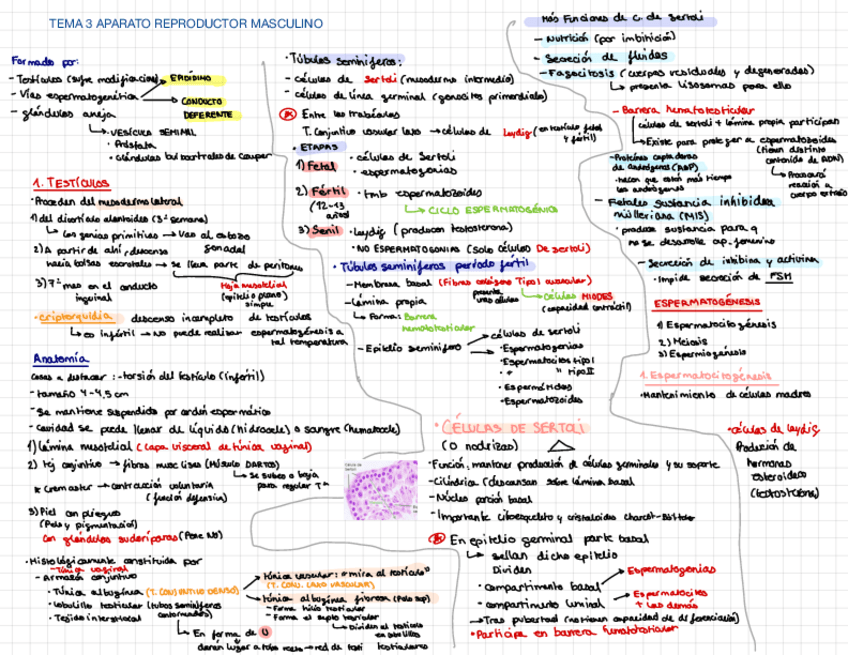 TEMA 3 APARATO REPRODUCTOR MASCULINO
Formado por:
- Testículos (sufre modificaciones) EPIDÍDIMO
- Vías espermatogenética CONDUCTO DEFERENTE
- glándulas aneja
VESÍCULA SEMINAL
• Próstata
• Glándulas bulbouretrales de Couper
1. TESTÍCULOS
• Proceden del mesodermo lateral
1) del divertículo alantoides (3ª semana)
Las gonias primitivas → Van al esbozo gonadal
2) A partir de ahí, descenso
hacia bolsas escrotales → se lleva parte de peritoneo
3) 7º mes en el conducto inguinal
Hoja mesotelial
(epitelio plano)
simple
• criptorquidia descenso incompleto de testículos
es infértil → no puede realizar espermatogénesis a
tal temperatura
Anatomía
cosas a destacar: - torsión del testículo (infértil)
- tamaño 4-4,5 cm
- Se mantiene suspendido por cordón espermático
- Cavidad se puede llenar de líquido (hidrocele) o sangre (hematocele)
1) Lámina mesotelial (capa visceral de túnica vaginal)
2) Tej conjuntivo → fibras musc lisa (Músculo DARTOS)
Se sube o baja
para regular Tª
* Cremaster → contracción voluntaria
(función defensiva)
3) Piel con pliegues
(Pelo y pigmentación)
Con glándulas sudoríparas (Pone NO)
• Histológicamente constituida por
- Túnica vaginal
- Armazón conjuntivo
• Túnica albugínea (T. CONJUNTIVO DENSO)
• lobulillo testicular (tubos seminíferos contorneados)
• Tejido intersticial
túnica vascular: "mira al testículo"
(T. CONJ. LAXO VASCULAR)
túnica albugínea fibrosa
- Forma hilio testicular
- Forma el septo testicular
Dividen al testículo
en lobulillos
En forma de U
• Túbulos seminíferos:
- células de Sertoli (mesodermo intermedio)
- células de línea germinal (gonocitos primordiales)
Entre las trabéculas
T. Conjuntivo vascular laxo → células de Leydig (en testículo fetal y fértil)
• ETAPAS
1) Fetal
• células de Sertoli
• espermatogonias
2) Fértil
(12-13 años)
• tmb espermatozoides
CICLO ESPERMATOGÉNICO
3) Senil
• Leydig (producen testosterona)
• NO ESPERMATOGONIAS (Solo células De Sertoli)
• Túbulos seminíferos período fértil
- Membrana basal
- Lámina propia
presenta
unas células
células MIOIDES
(capacidad contráctil)
Forma: Barrera
hematotesticular
- Epitelio seminífero
células de sertoli
• Espermatogonias
• Espermatocitos tipo I
• " " tipo II
• Espermátidas
• Espermatozoides
• CÉLULAS DE SERTOLI
(O nodrizas)
• Función, mantener producción de células germinales y su soporte
• Cilíndrica (descansan sobre lámina basal)
- Núcleo porción basal
- Importante citoesqueleto y cristaloides Charcot-Böttcher
En epitelio germinal parte basal
sellan dicho epitelio
Dividen
• compartimento basal → Espermatogonias
• compartimento luminal → Espermatocitos
+ las demás
→ Tras pubertad (no tienen capacidad de diferenciación)
• Participa en barrera hematotesticular
Más Funciones de C. de Sertoli
- Nutrición (por imbibición)
- Secreción de fluidos
- Fagocitosis (cuerpos residuales y degenerados)
presenta lisosomas para ello
- Barrera hematotesticular
células de sertoli + lámina propia participan
Existe para proteger a espermatozoides
(tienen distinto
contenido de ADN)
Provocará
reacción a
cuerpo extraño
- Proteínas captadoras
de andrógenos (ABP)
• hacen que estén más tiempo
los andrógenos
- Fetales sustancia inhibidora
mülleriana (MIS)
• produce sustancia para q
no se desarrolle ap. femenino
- Secrección de inhibina y activina
• Impide secreción de FSH
ESPERMATOGÉNESIS
1) Espermatocitogénesis
2) Meiosis
3) Espermiogénesis
1. Espermatocitogénesis
• Mantenimiento de células madres
• células de leydig
Producción de
hormonas
esteroideas
(testosterona)